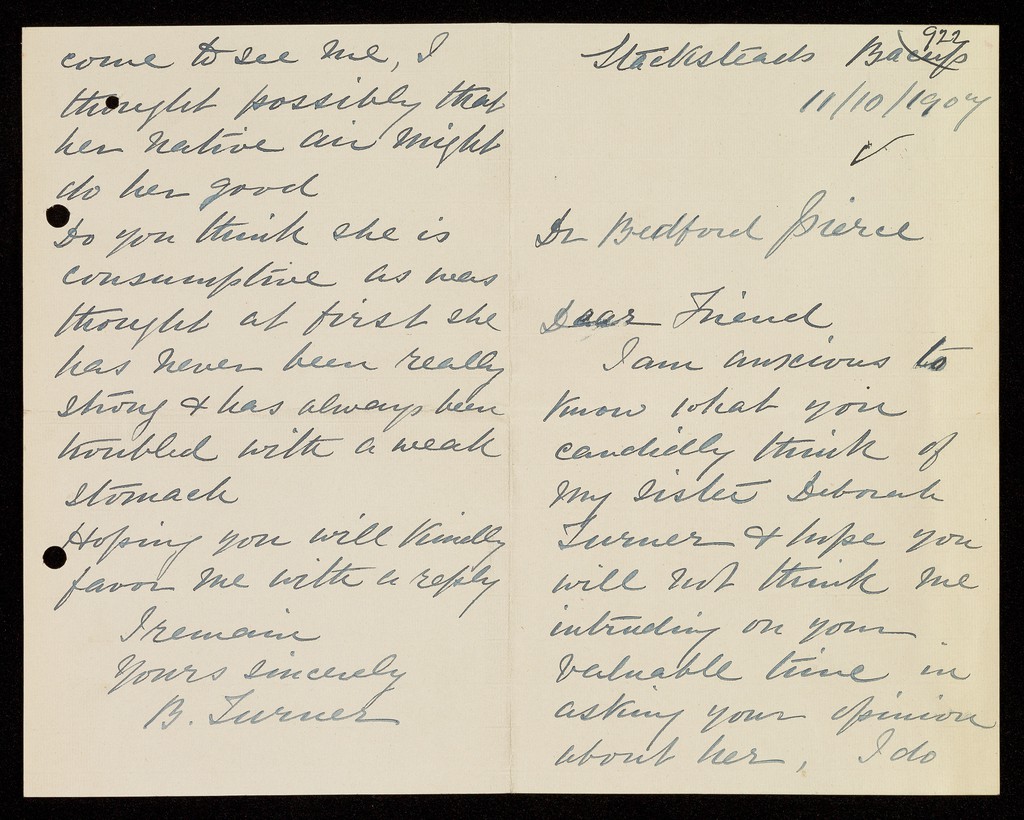 922
Stacksteads Bacup
11/10/1907
Dr Bedford Pierce
Dear Friend
I am anxcious to
know what you
candidly think of
my sister Deborah
Turner & hope you
will not think me
intruding on your
valuable time in
asking your opinion
about her, I do
come to see me, I
thought possibly that
her native air might
do her good
Do you think she is
consumptive as was
thought at first she
has never been really
strong & has always been
troubled with a weak
stomach
Hoping you will kindly
favor me with a reply
I remain
Yours sincerely
B. Turner